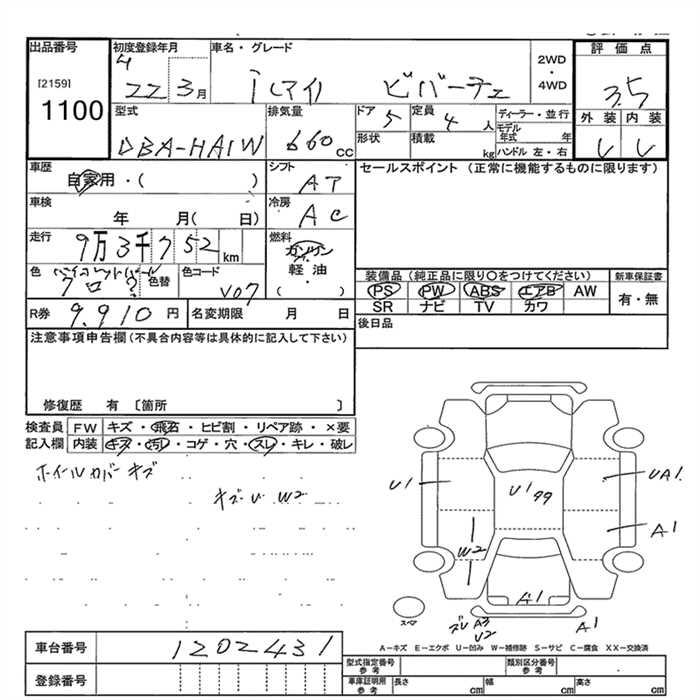 出品番号 初度登録年月 車名・グレード 2WD・4WD 評価点
[2159] 1100 22年3月 i(アイ) ビバーチェ 3.5
型式 排気量 ドア 5 定員 4人 ディーラー・並行 外装 内装
DBA-HA1W 660cc 形状 積載 kg モデル年式 年 ハンドル 左・右
車歴 シフト セールスポイント (正常に機能するものに限ります)
自家用・( ) AT
車検 冷房
年 月( 日) AC
走行 燃料
9万3千752km ガソリン
軽油
色 色替 色コード V07 ・( )
装備品(純正品に限り〇をつけてください) 新車保証書
PS PW ABS エアB AW 有・無
SR ナビ TV カワ
R券 9,910円 名変期限 月 日 後日品
注意事項申告欄(不具合内容等は具体的に記入して下さい)
修復歴 有 〔箇所 〕
検査員 FW キズ・飛石・ヒビ割・リペア跡・×要
記入欄 内装 キズ・汚れ・コゲ・穴・スレ・キレ・破レ
ホイールカバーキズ
キズU W2
U1 U1 99 UA1
A1
W2
A1
スペア ズレ A3 A1
U2
A-キズ E-エクボ U-凹み W-補修跡 S-サビ C-腐食 XX-交換済
車台番号 1202431 型式指定番号 参考 類別区分番号 参考
登録番号 車庫証明用 参考 長さ cm 幅 cm 高さ cm